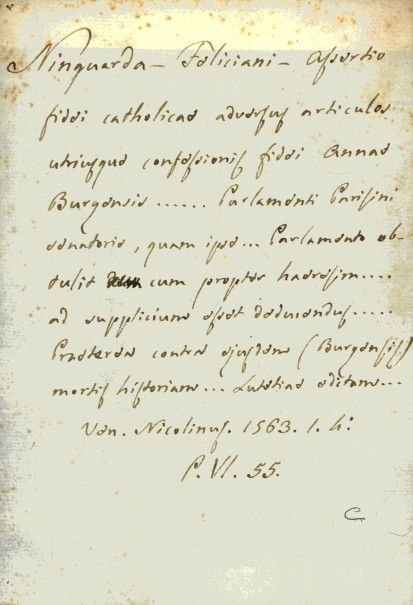 Ninguarda - Feliciani - Assertio
fidei catholicae adversus articulos
utriusque confessionis fidei Annae
Burgensis ...... Parlamenti Parisini
senatoris, quam ipse ... Parlamento ob-
tulit cum propter haeresim ....
ad supplicium esset deducendus .....
Praeterea contra ejusdem (Burgensis)
mortis historiam ... Lutetiae editam ...
Ven. Nicolinus. 1563. 1. 4:
P. VI. 55.
C